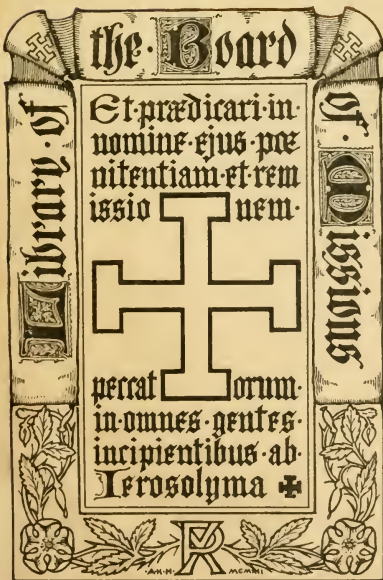 Library·of
the·Board
of·Missions
Et·prædicari·in·
nomine·ejus·pœ
nitentiam·et·rem
issio nem·
peccat orum·
in·omnes·gentes·
incipientibus·ab·
Ierosolyma ✠